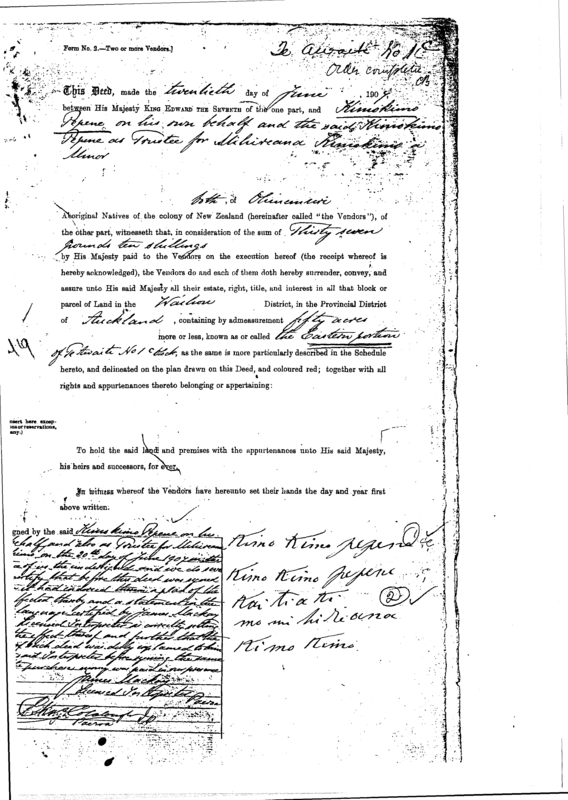 Form No. 2.—Two or more Vendors.]
Te Awaiti No 1C
Order completed
This Deed, made the twentieth day of June 190
between His Majesty KING EDWARD THE SEVENTH of the one part, and Kimokimo
Pepene on his own behalf and the said Kimokimo
Pepene as Trustee for Mihireana Kimokimo a
Minor
both of
Aboriginal Natives of the colony of New Zealand (hereinafter called "the Vendors"), of
the other part, witnesseth that, in consideration of the sum of Thirty seven
pounds ten shillings
by His Majesty paid to the Vendors on the execution hereof (the receipt whereof is
hereby acknowledged), the Vendors do and each of them doth hereby surrender, convey, and
assure unto His said Majesty all their estate, right, title, and interest in all that block or
parcel of Land in the District, in the Provincial District
of Auckland, containing by admeasurement fifty acres
more or less, known as or called the Eastern portion
of Te Awaiti No 1C Block, as the same is more particularly described in the Schedule
hereto, and delineated on the plan drawn on this Deed, and coloured red; together with all
rights and appurtenances thereto belonging or appertaining:
insert here excep-
ions or reservations,
any.)
To hold the said land and premises with the appurtenances unto His said Majesty,
his heirs and successors, for ever.
In witness whereof the Vendors have hereunto set their hands the day and year first
above written.
gned by the said Kimokimo Pepene on his
behalf and also as Trustee for
on the 20th day of June
certify that before this deed was signed
it had indorsed thereon a plan of the
and a statement in the
language certified by James Mackay
licensed Interpreter
the effect thereof and further that the
deed was duly explained to him
Interpreter before signing the same
purchase money was paid in our presence
James Mackay
Licensed Interpreter
Paeroa
JP
Paeroa
Kimo Kimo pepene
Kimo Kimo pepene
Kai tiaki
2
mo mihiriana
Kimo Kimo